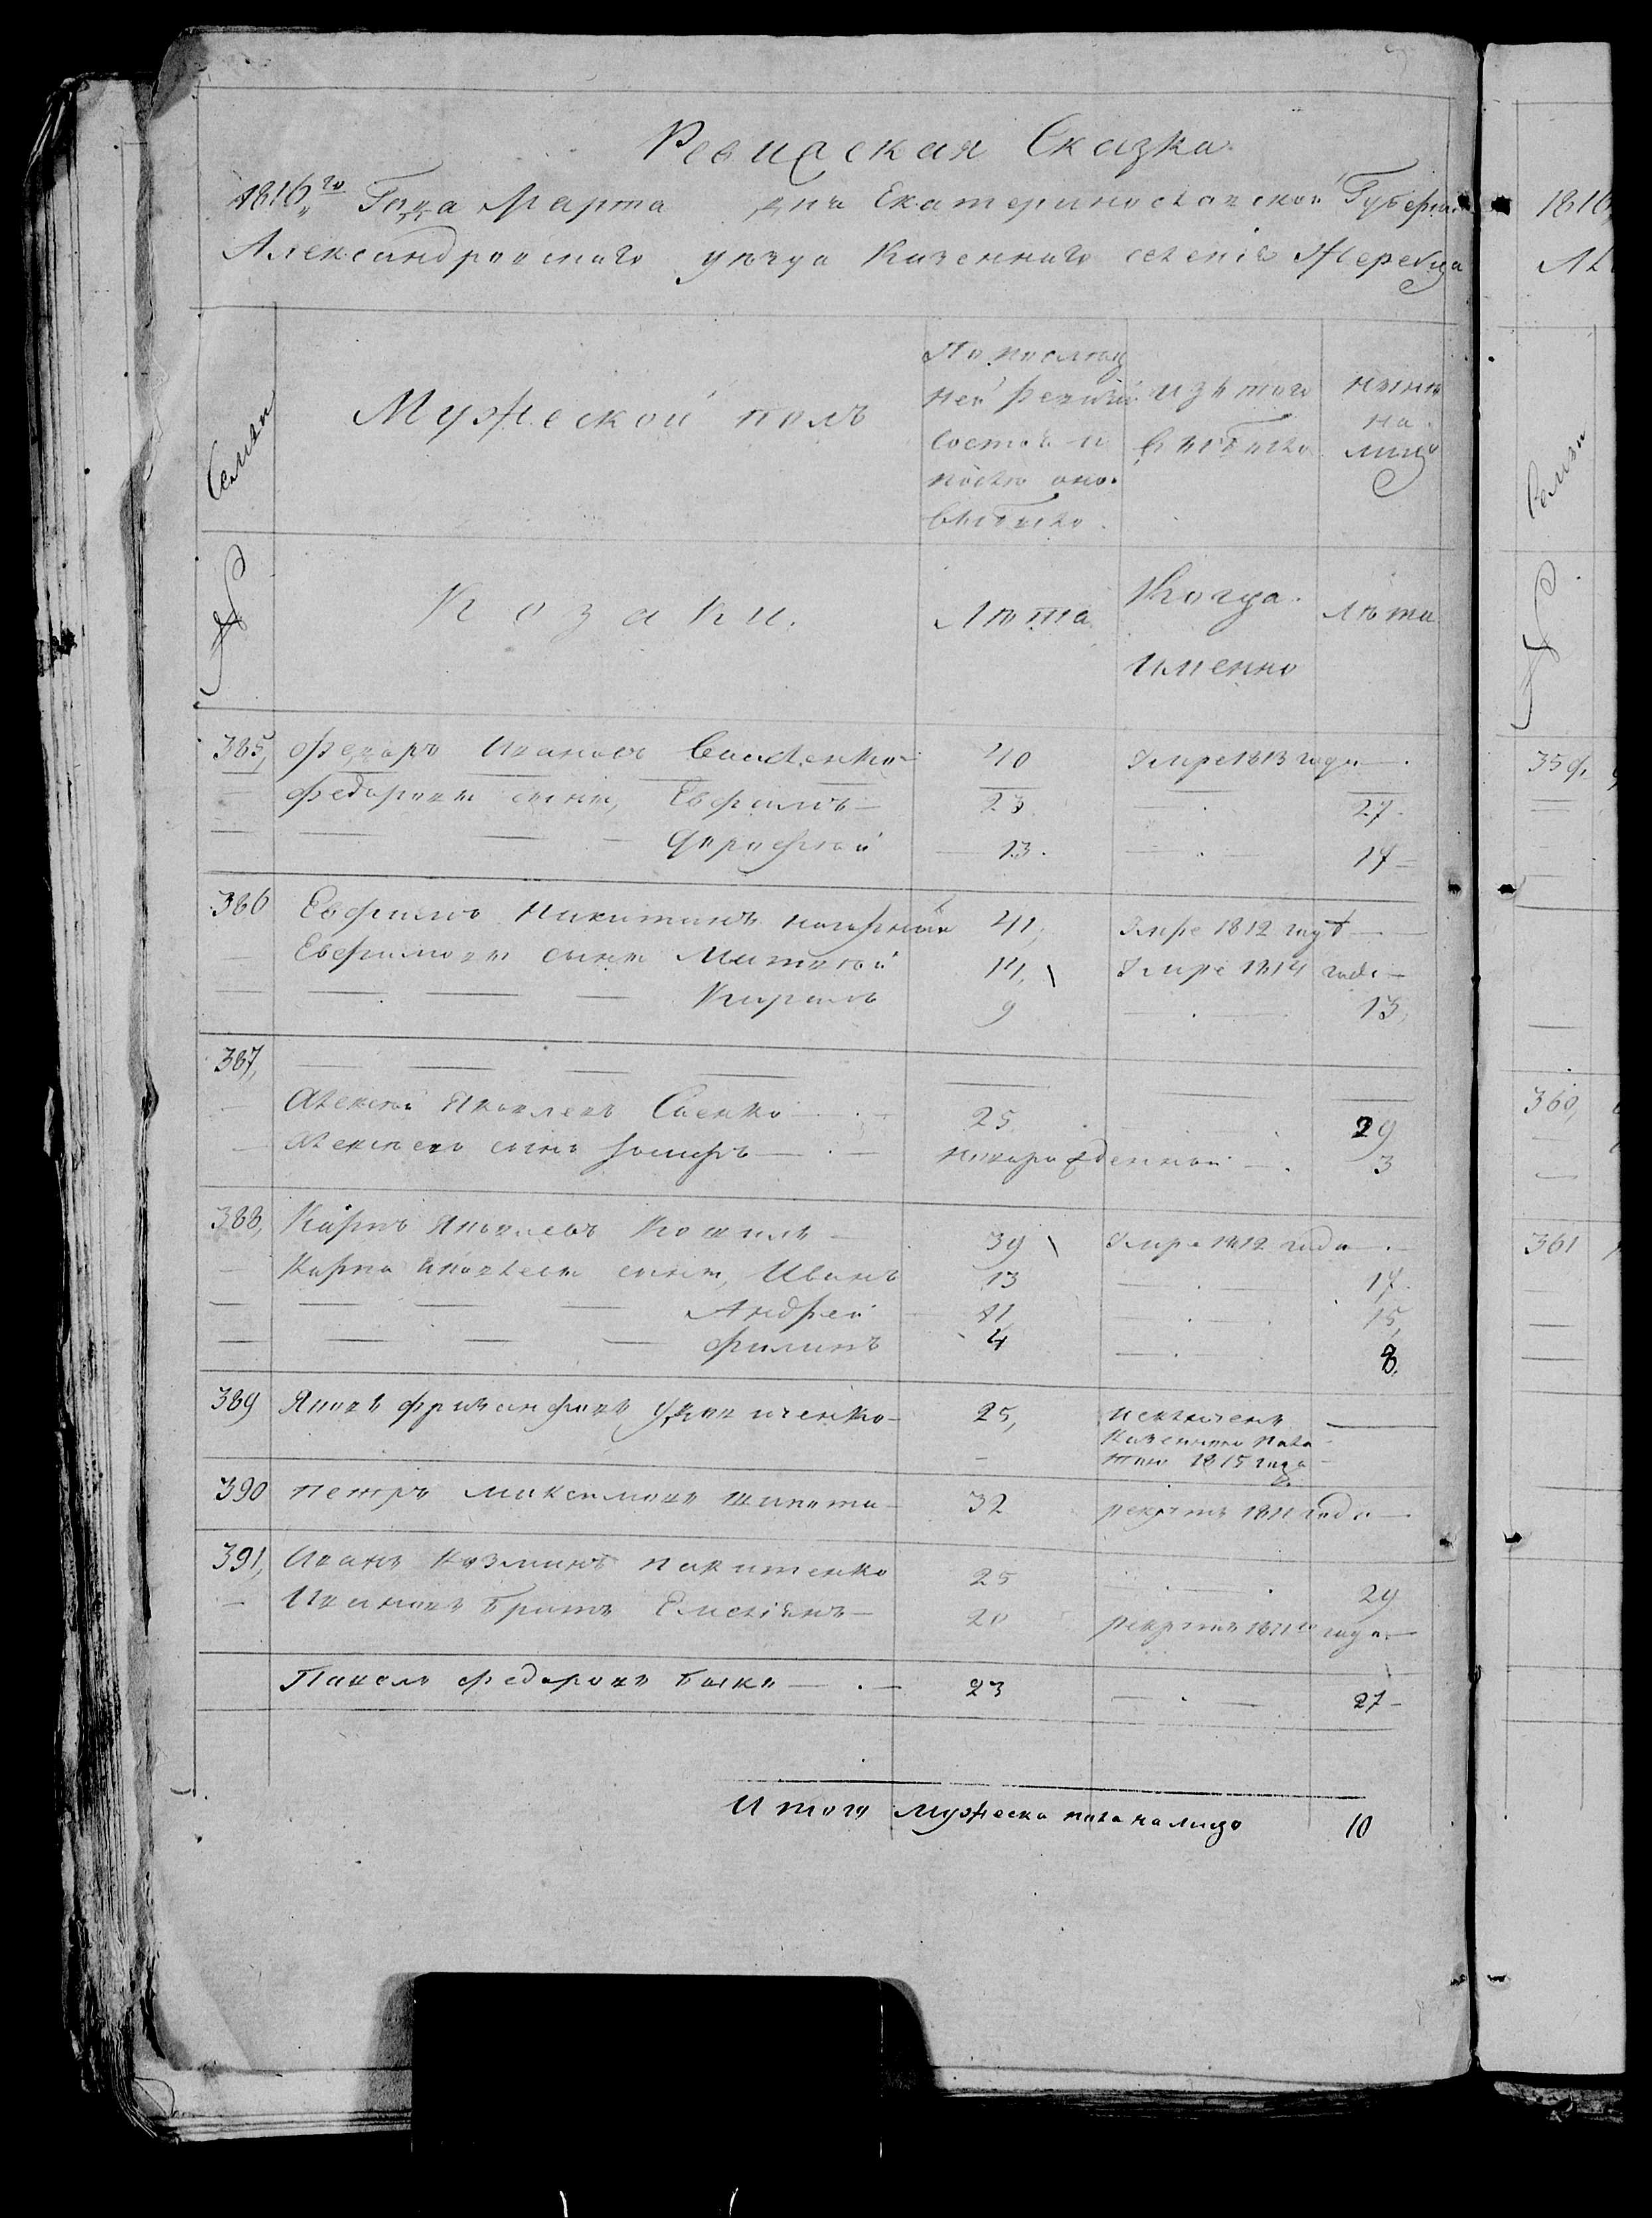 Ревизская Сказка
1816го Года Марта дня Екатеринославской Губерніи
Александровского уезда Казенного селенія Жеребца
Семьи
Мужеской полъ
По послед
ней ревизіи
состояло и
после оно
выбыло
изъ того
выбыло
ныне
на
лицо
№
Козаки.
Лѣта
Когда
именно
Лѣта
385, Федоръ Ивановъ 40 Умре 1813 года
Федоровы сыны, Евфимъ 23 27
Дорофей 13 17
386 Евфимъ Никитинъ Нагорный 41, Умре 1812 году
Евфимовы сыны Матвей 14, Умре 1814 года
Кирилъ 9 13,
387,
Алексей Яковлевъ Саенко 25 29
Алексеевъ сынъ новорожденной 3
388, Карпъ Яковлевъ Кошиль 39 Умре 1812 года
Карпа Яковлева сыны, Иванъ 13 17
Андрей 11 15,
Филипъ 4 8,
389 Яковъ 25, исключенъ
Казенною Пала
тою 1815 года
390 Петръ Максимовъ Шапота 32 рекрутъ 1811 года
391, Иванъ Козминъ Никитенко 25 29
Ивановъ братъ Емеліянъ 20 рекрутъ 1811го года
Павелъ Федоровъ Быкъ 23 27
Итого мужеска пола на лицо 10
1816
Ал
Семьи
№
359,
360,
361